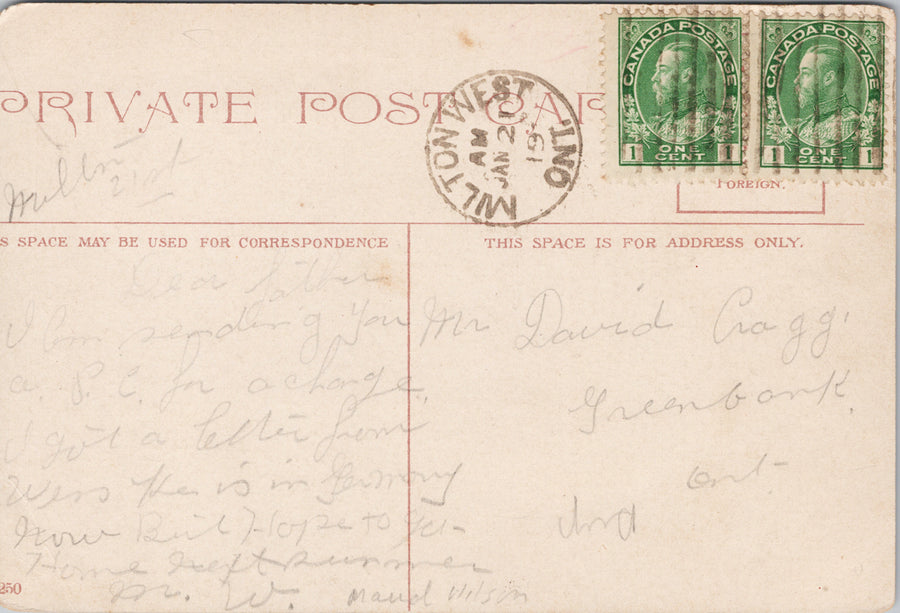 PRIVATE POST CAR
CANADA POSTAGE
1 ONE CENT 1
CANADA POSTAGE
1 ONE CENT 1
MILTON WEST ONT.
AM
JAN 21
19
FOREIGN.
Milton
21st
S SPACE MAY BE USED FOR CORRESPONDENCE
THIS SPACE IS FOR ADDRESS ONLY.
Dear father
I am sending you
a P.C. for a change.
I got a letter from
Wess he is in Germany
Now But Hope to
Home Next summer
M. W. Maud Wilson
Mr David Cragg.
Greenbank.
Ont
250